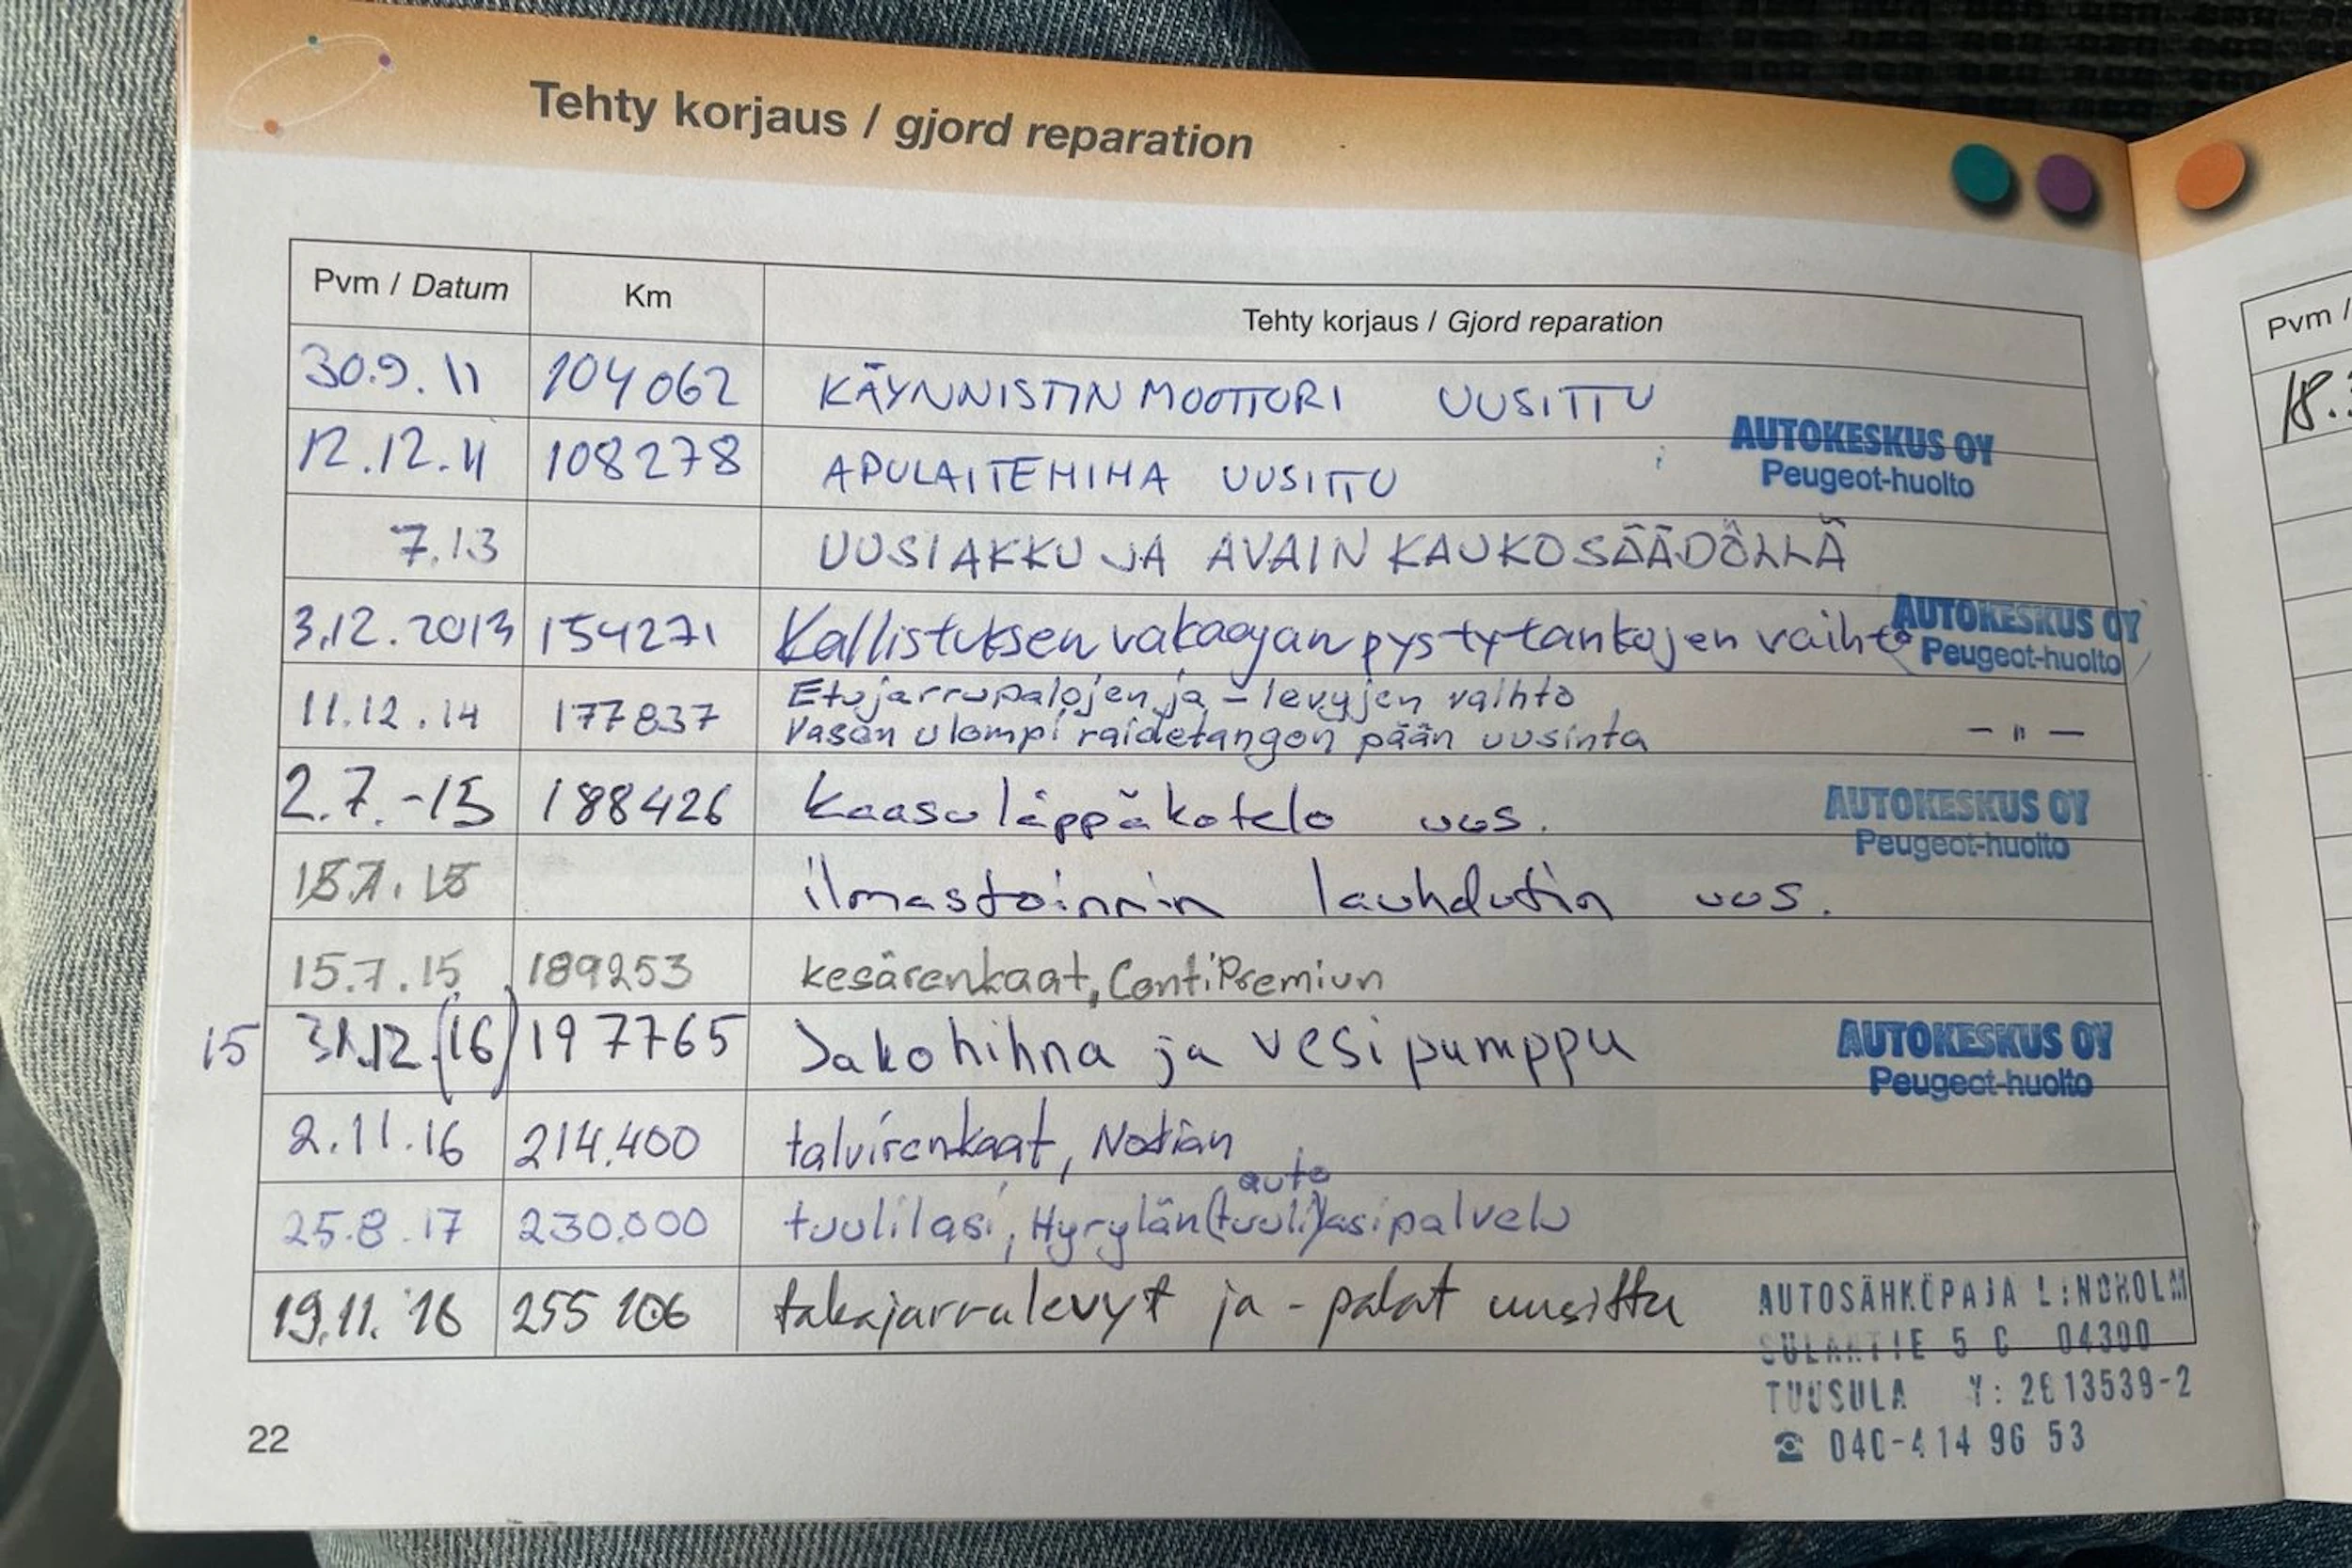 Tehty korjaus / gjord reparation
Pvm / Datum Km Tehty korjaus / Gjord reparation
30.9.11 104062 KÄYNNISTINMOOTTORI UUSITTU
12.12.11 108278 APULAITEHIHA UUSITTU
AUTOKESKUS OY
Peugeot-huolto
7.13 UUSI AKKU JA AVAIN KAUKOSÄÄDÖLLÄ
3.12.2013 154271 Kallistuksen vakaajan pystytankojen vaihto
AUTOKESKUS OY
Peugeot-huolto
11.12.14 177837 Etujarrupalojen ja -levyjen vaihto
Vasen ulompi raidetangon pään uusinta - " -
2.7.-15 188426 Kaasuläppäkotelo uus.
AUTOKESKUS OY
Peugeot-huolto
15.7.15 ilmastoinnin lauhdutin uus.
15.7.15 189253 kesärenkaat, ContiPremiun
15 31.12 (16) 197765 Jakohihna ja vesipumppu
AUTOKESKUS OY
Peugeot-huolto
2.11.16 214.400 talvirenkaat, Nokian
auto
25.8.17 230.000 tuulilasi, Hyrylän (tuuli)lasipalvelu
19.11.'18 255 106 takajarrulevyt ja -palat uusittu
AUTOSÄHKÖPAJA LINDHOLM
5 C 04300
TUUSULA Y: 2613539-2
☎ 040-414 96 53
22
Pvm /
18.